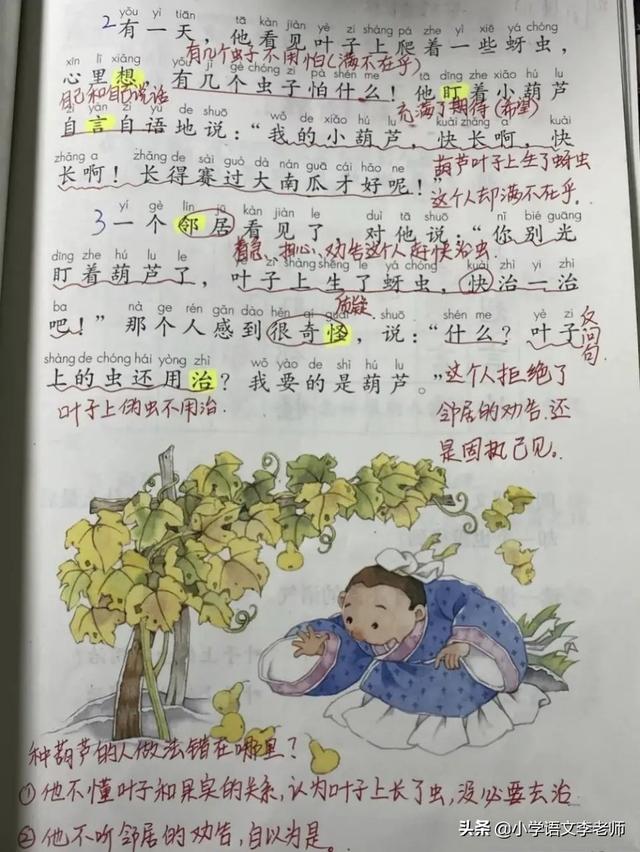 yǒu yì tiān tā kàn jiàn yè zi shàng pá zhe yì xiē yá chóng
2有一天，他看见叶子上爬着一些蚜虫，
有几个虫子不用怕(满不在乎)
xīn lǐ xiǎng yǒu jǐ gè chóng zi pà shén me tā dīng zhe xiǎo hú lu
心里想，有几个虫子怕什么！他盯着小葫芦
自己和自己说话
充满了期待(希望)
zì yán zì yǔ de shuō wǒ de xiǎo hú lu kuài zhǎng a kuài
自言自语地说：“我的小葫芦，快长啊，快
zhǎng a zhǎng de sài guò dà nán guā cái hǎo ne
长啊！长得赛过大南瓜才好呢！”
葫芦叶子上生了蚜虫
这个人却满不在乎。
yí gè lín jū kàn jiàn le duì tā shuō nǐ bié guāng
3一个邻居看见了，对他说：“你别光
着急、担心、劝告这个人赶快治虫
dīng zhe hú lu le yè zi shàng shēng le yá chóng kuài zhì yi zhì
盯着葫芦了，叶子上生了蚜虫，快治一治
质疑
ba nà ge rén gǎn dào hěn qí guài shuō shén me yè zi
吧！”那个人感到很奇怪，说：“什么？叶子
反问句
shàng de chóng hái yòng zhì wǒ yào de shì hú lu
上的虫还用治？我要的是葫芦。”
叶子上的虫不用治.
这个人拒绝了
邻居的劝告.还
是固执己见。
种葫芦的人做法错在哪里？
①他不懂叶子和果实的关系,认为叶子上长了虫,没必要去治
②他不听邻居的劝告,自以为是。
头条 @小学语文李老师